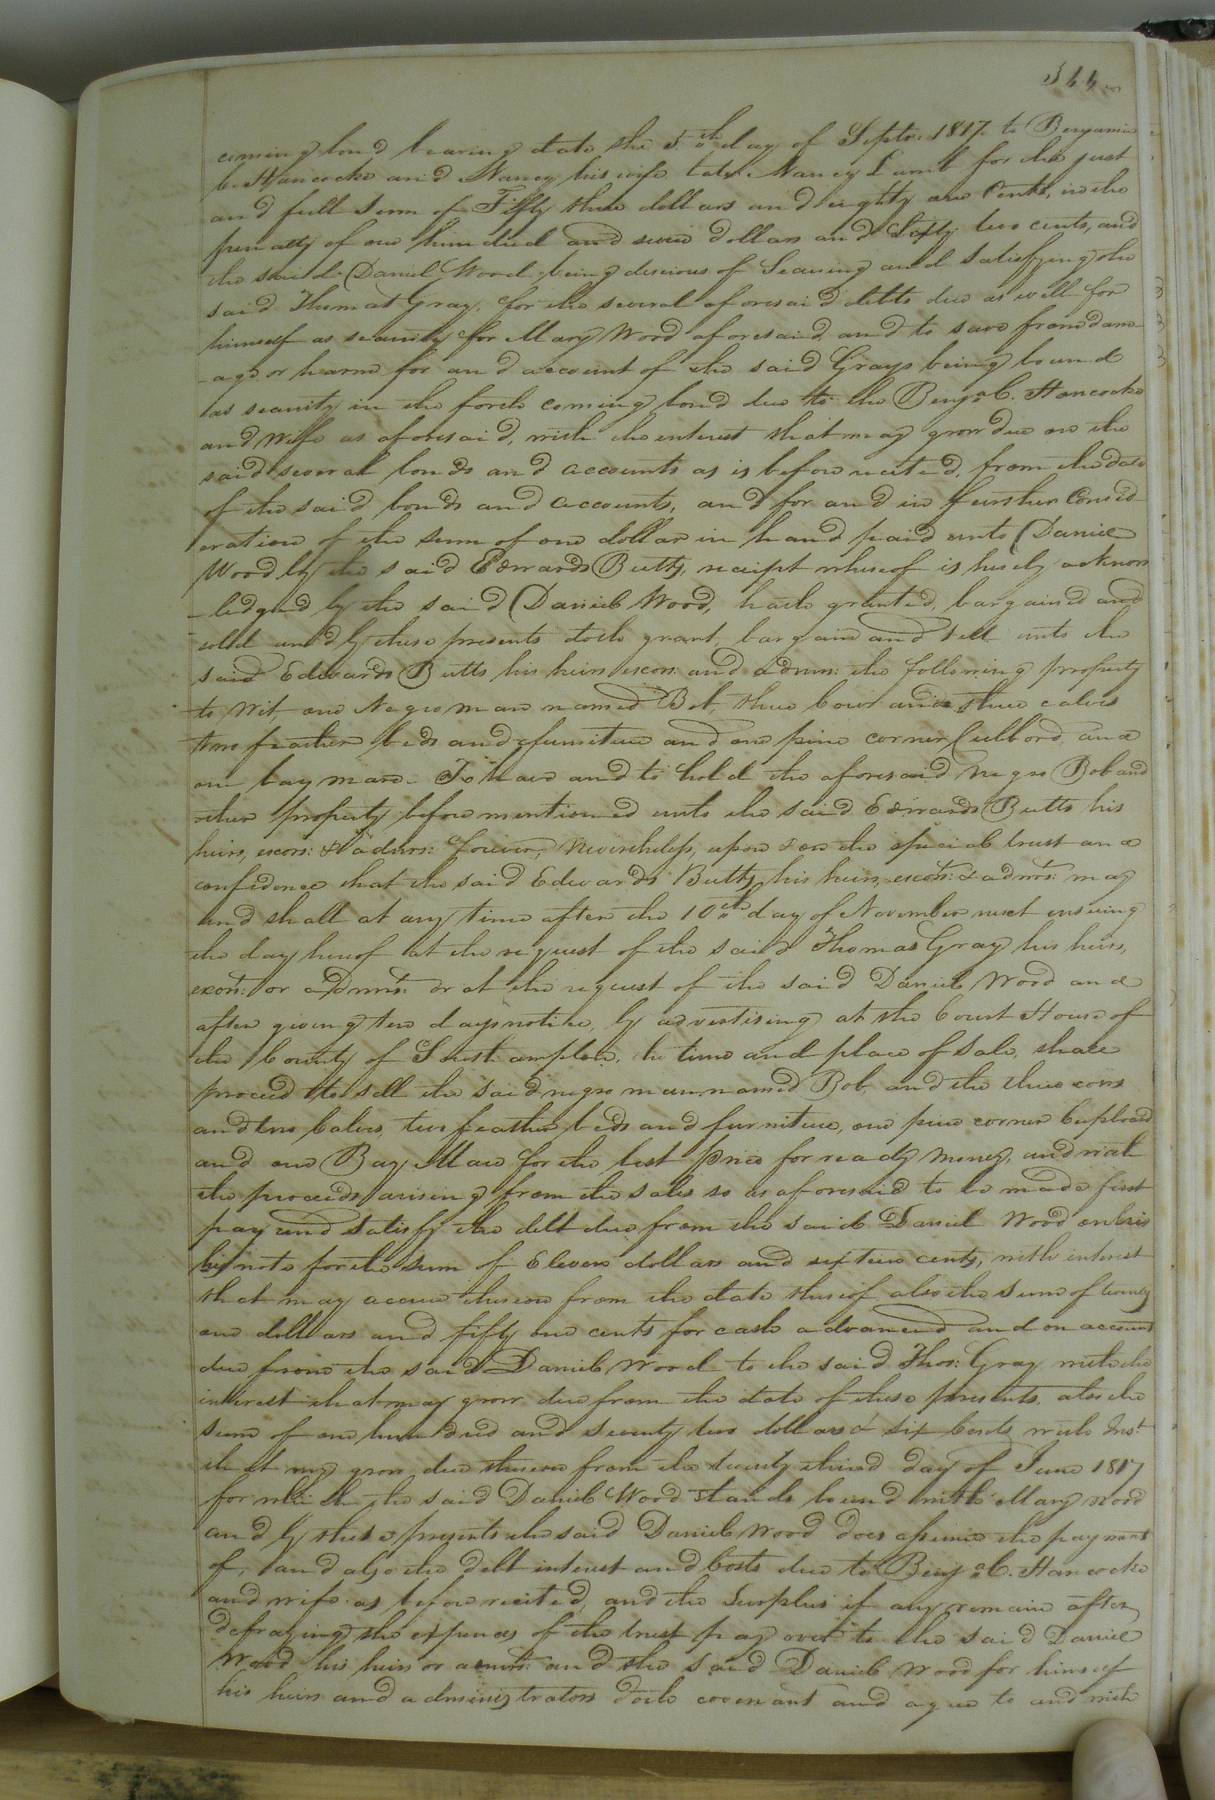 344
coming bond bearing date the 5th day of Septr. 1817. to Benjamin
C. Hancocke and Nancy his wife late Nancy Lamb for the just
and full sum of Fifty three dollars and eighty one Cents, in the
penalty of one hundred and seven dollars and Sixty two cents, and
the said Daniel Wood being desirous of Securing and Satisfying the
said Thomas Gray, for the several aforesaid debts due as well for
himself as security for Mary Wood aforesaid and to save from dam-
-age or harm for and account of the said Grays being bound
as security in the forth coming bond due to the Benja. C. Hancocke
and Wife as aforesaid, with the interest that may grow due on the
said several bonds and accounts as is before recited, from the date
of the said bonds and accounts, and for and in further Consid-
eration of the sum of one dollar in hand paid unto Daniel
Wood by the said Edwards Butts, receipt whereof is hereby acknow
-ledged by the said Daniel Wood, hath granted, bargained and
sold and by these presents doth grant, bargain and sell unto the
said Edwards Butts his heirs excors: and admrs: the following property
to Wit, one Negro man named Bob, three cows and three calves
two feather beds and furniture and one pine corner Cubbord and
one bay mare. To have and to hold the aforesaid negro Bob and
other property before mentioned unto the said Edwards Butts his
heirs, excors: & admrs: forever, Nevertheless, upon & on the special trust and
confidence that the said Edwards Butts, his heirs, excors: & admrs: may
and shall at any time after the 10th day of November next ensuing
the day hereof at the request of the said Thomas Gray his heirs,
excors: or admrs: or at the request of the said Daniel Wood and
after giving ten days notice, by advertising at the Court House of
the County of Southampton, the time and place of Sale, shall
proceed to sell the said negro man named Bob, and the three cows
and two Calves, two feather beds and furniture, one pine corner Cupboard
and one Bay Mare for the best price for ready money, and with
the proceeds arising from the sales so as aforesaid to be made first
pay and satisfy the debt due from the said Daniel Wood on his
note for the sum of Eleven dollars and sixteen cents, with interest
that may accrue thereon from the date thereof also the sum of twenty
one dollars and fifty one cents for cash advanced and on account
due from the said Daniel Wood to the said Thos: Gray with the
interest that may grow due from the date of these presents, also the
sum of one hundred and seventy two dollars & six Cents with Inst.
that may grow due thereon from the twenty third day of June 1817
for which the said Daniel Wood stands bound with Mary Wood
and by these presents the said Daniel Wood does assume the payment
of, and also the debt interest and Costs due to Benja C. Hancocke
and wife as before recited, and the Surplus if any remain after
defraying the expences of the trust pay over to the said Daniel
Wood his heirs or admrs: and the said Daniel Wood for himself
his heirs and administrators doth covenant and agree to and with